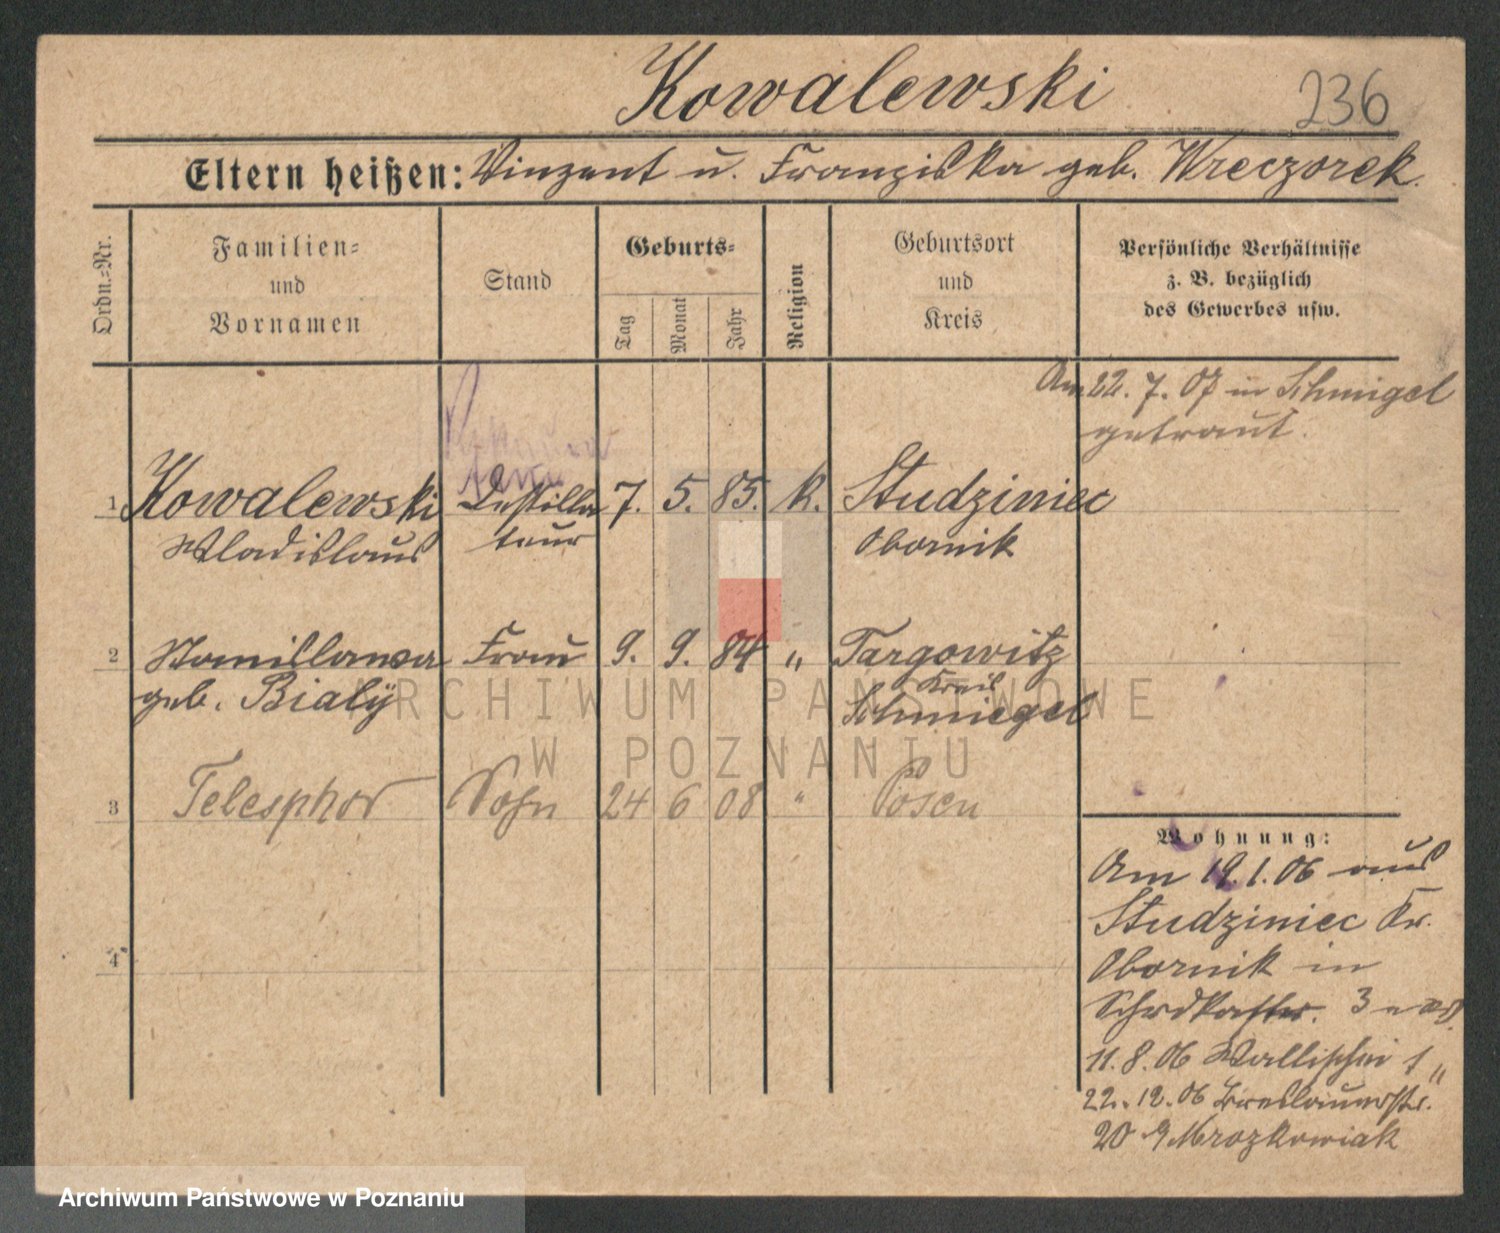 Kowalewski 236
Eltern heißen: Vinzent u. Franziska geb. Wreczorek
Ordn.-Nr.
Familien-
und
Vornamen
Stand
Geburts-
Tag
Monat
Jahr
Religion
Geburtsort
und
Kreis
Persönliche Verhältnisse
z. B. bezüglich
des Gewerbes usw.
Am 22. 7. 07 in Schmigel
getraut.
1 Kowalewski Destilla 7. 5. 85. k. Studziniec
Wladislaus teur Obornik
2 Stanislawa Frau 9. 9. 84 " Targowitz
geb. Bialÿ Kreis
Schmiegel
3 Telesphor Sohn 24 6 08 " Posen
4
Wohnung:
Am 19.1.06 aus
Studziniec Kr.
Obornik in
3
11.8.06 Wallischei 1 "
22.12.06 Breslauerstr.
20 Mrozkowiak
ARCHIWUM PAŃSTWOWE
W POZNANIU
Archiwum Państwowe w Poznaniu